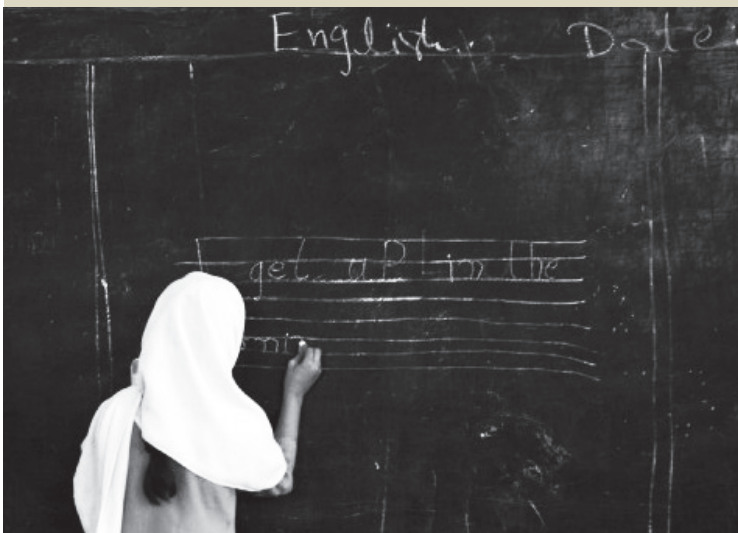 English. Date:
I get up in the
rnin